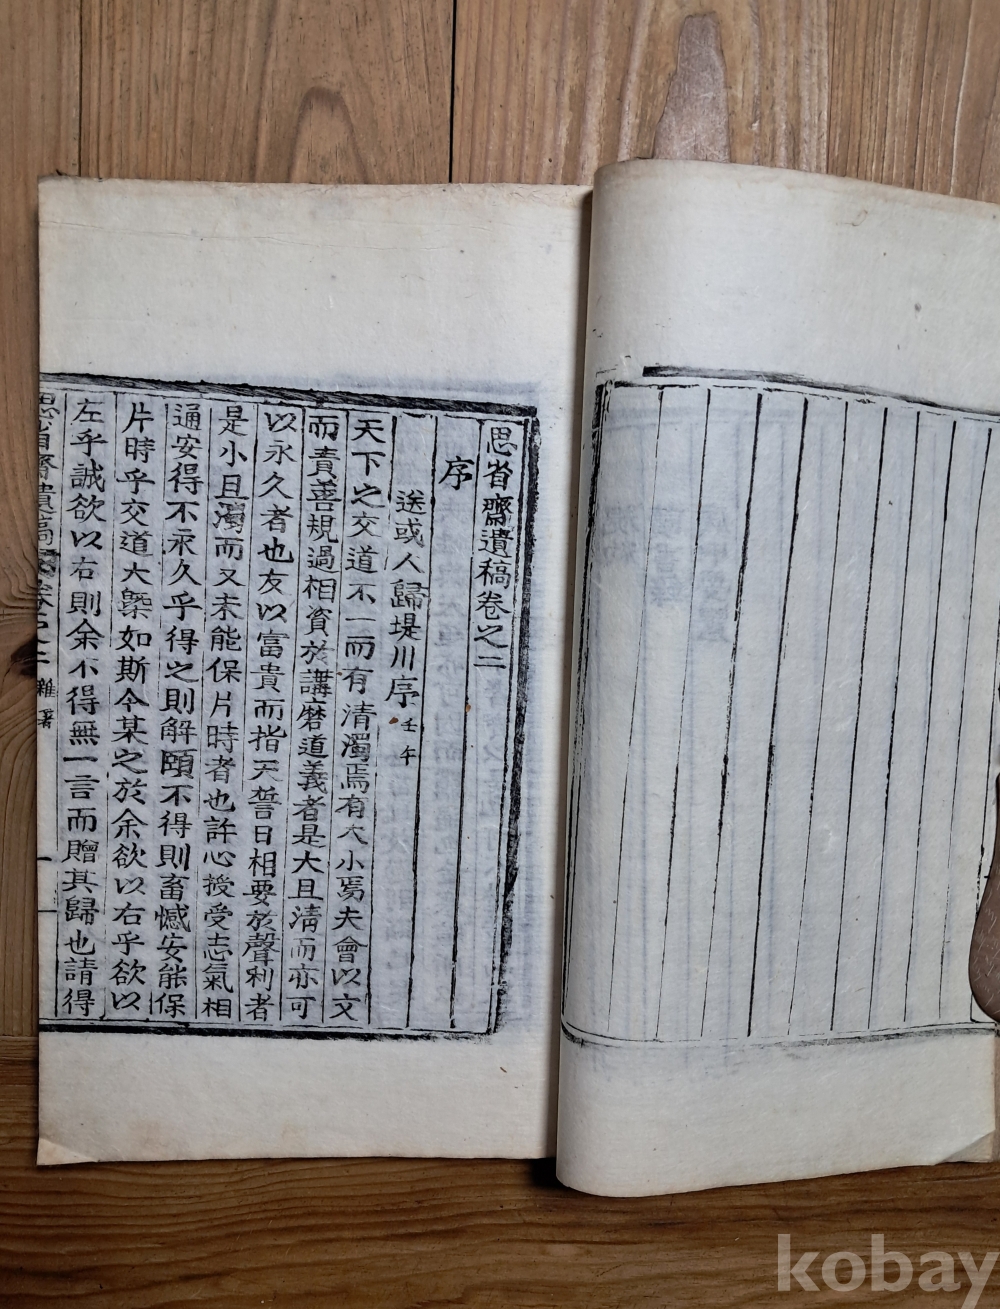 思省齋遺稿卷之二
序
送或人歸堤川序 壬午
天下之交道不一而有清濁焉有大小焉夫會以文
而責善規過相資於講磨道義者是大且淸而亦可
以永久者也友以富貴而指天誓日相要於聲利者
是小且濁而又未能保片時者也許心授受志氣相
通安得不永久乎得之則解頤不得則畜憾安能保
片時乎交道大槩如斯今某之於余欲以右乎欲以
左乎誠欲以右則余不得無一言而贈其歸也請得
思省齋遺稿 卷之二 雜著 一
kobay